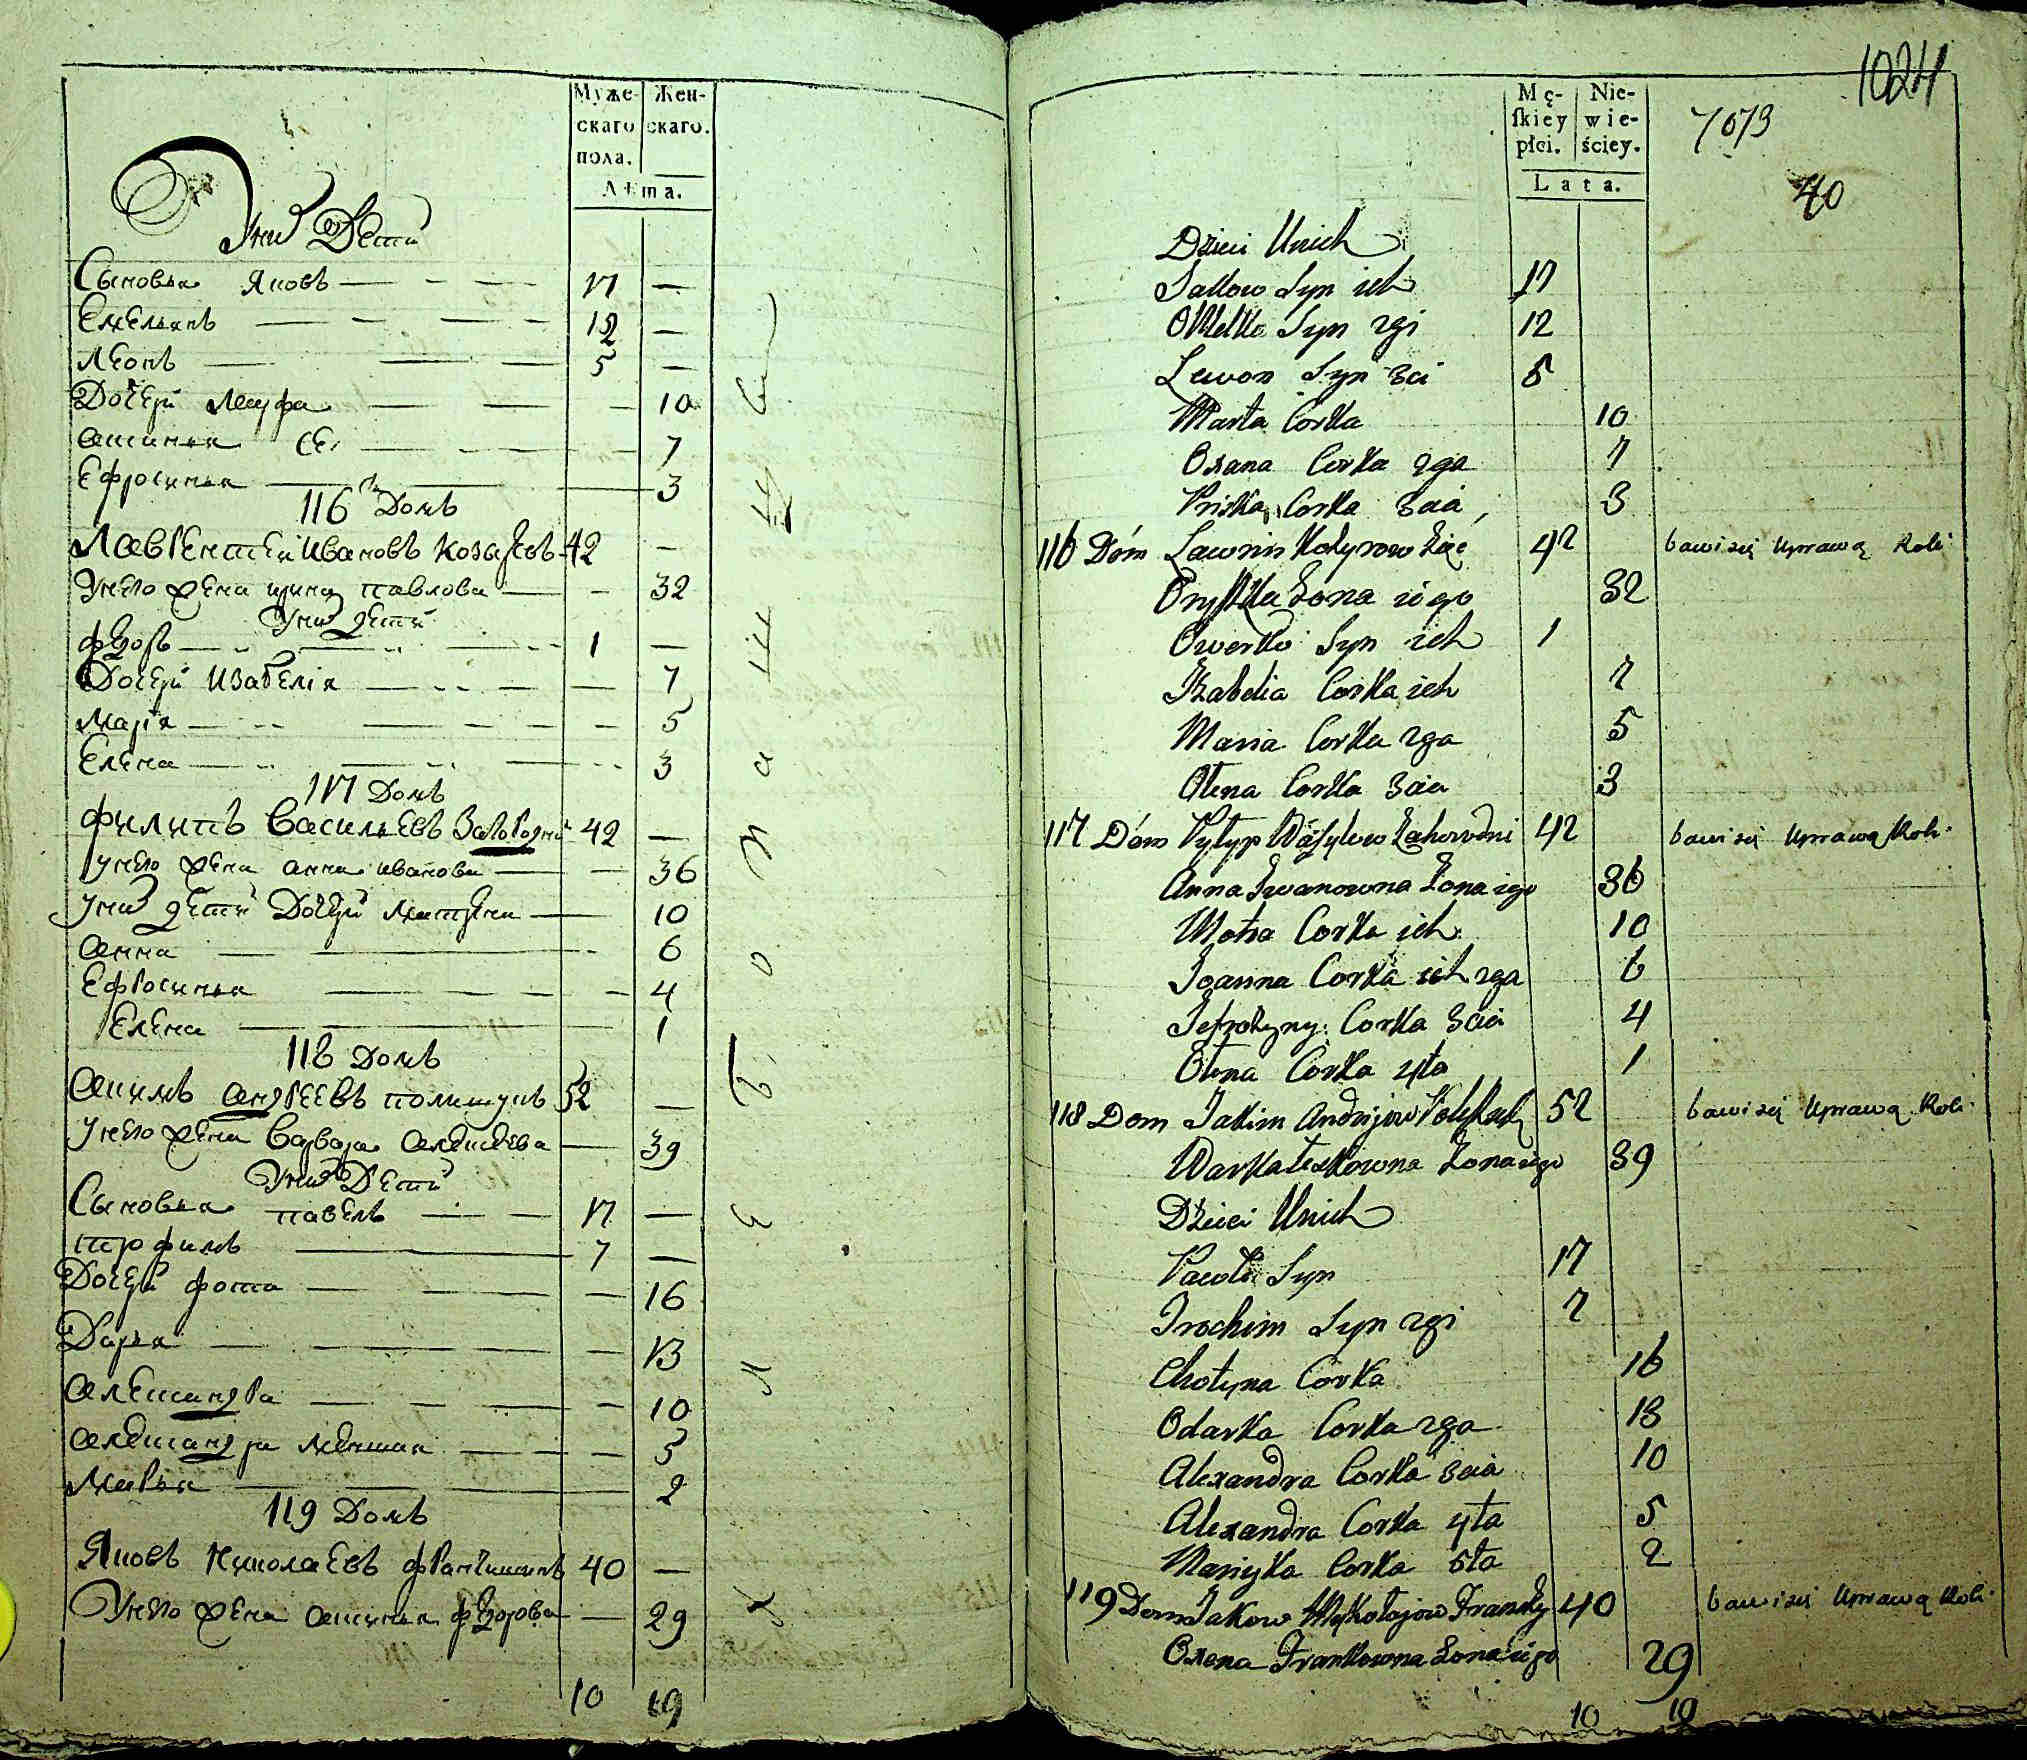 Муже-
скаго
пола.
Жен-
скаго.
Лѣта.
У них Дети
Сыновья Яковъ 17
Емельянъ 12
Леонъ 5
Дочери Марфа 10
Аксинья 7
Ефросинья 3
116 Домъ
Лаврентей Ивановъ 42
У него жена Ирина Павлова 32
У них дети
Федоръ 1
Дочери Изабелія 7
Марія 5
Елена 3
117 Домъ
Филипъ Васильевъ 42
У него жена Анна Иванова 36
У них дети Дочери 10
Анна 6
Ефросинья 4
Елена 1
118 Домъ
Акимъ Андреевъ 52
У него жена Варвара Алексеева 39
У них Дети
Сыновья Павелъ 17
Трофимъ 7
Дочери 16
Дарья 13
Александра 10
Александра меншая 5
Марья 2
119 Домъ
Яковъ Николаевъ 40
У него жена Аксинья Федорова 29
10 19
Хлебопашцы
1024
7073
40
Mę-
skiey
płci.
Nie-
wie-
ściey.
Lata.
Dzieci Unich
Jakow Syn ich 17
Omelko Syn 2gi 12
Lewon Syn 3ci 5
Marta Corka 10
Oxana Corka 2ga 7
Priska Corka 3cia 3
116 Dóm Lawrin 42 bawi się Uprawą Roli
Oryszka Żona iego 32
Owerko Syn ich 1
Izabelia Corka ich 7
Maria Corka 2ga 5
Ołena Corka 3cia 3
117 Dóm Pyłyp Wasylow Zahorodni 42 bawi się Uprawą Roli
Anna Iwanowna Żona iego 36
Motra Corka ich 10
Joanna Corka ich 2ga 6
Corka 3cia 4
Ołena Corka 4ta 1
118 Dom Jakim Andrijow 52 bawi się Uprawą Roli
Warka Leskowna Żona iego 39
Dzieci Unich
Pawło Syn 17
Trochim Syn 2gi 7
Chotyna Corka 16
Odarka Corka 2ga 13
Alexandra Corka 3cia 10
Alexandra Corka 4ta 5
Maryika Corka 5ta 2
119 Dom Jakow Mykołajow 40 bawi się Uprawą Roli
Oxena Żona iego 29
10 19